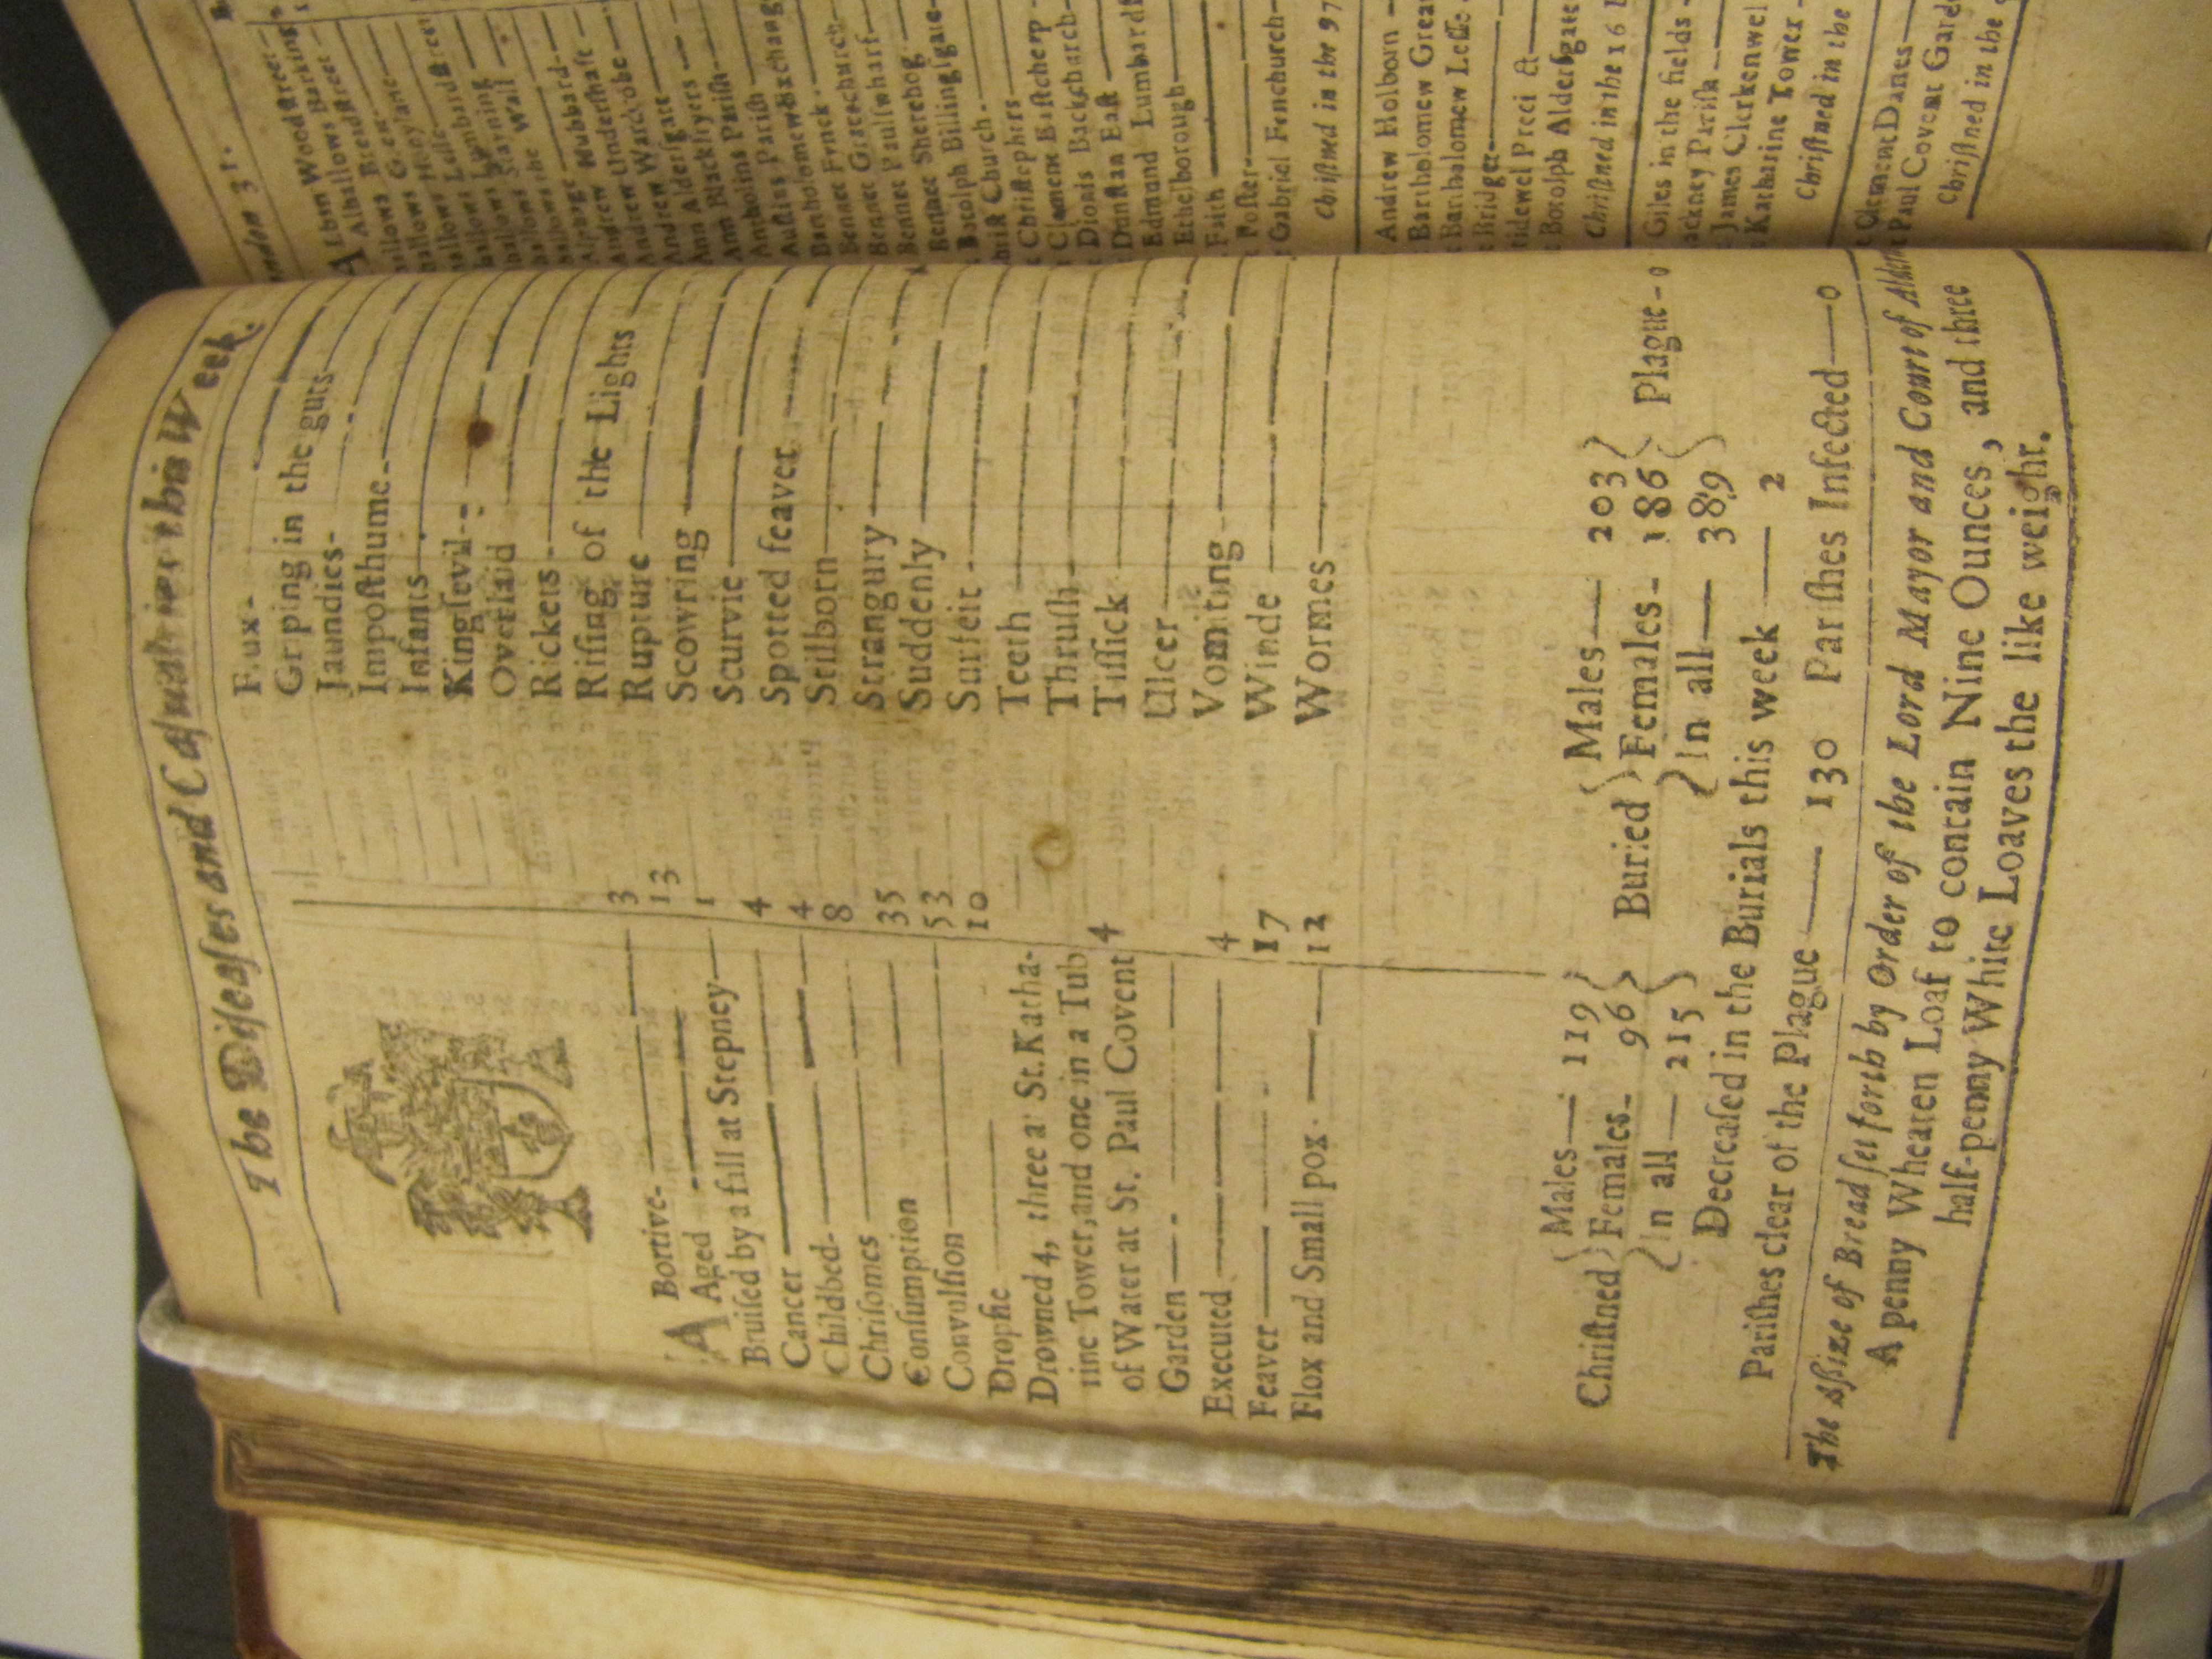 The Diseases and Casualties this Week.
ABortive- 3
Aged 13
Bruised by a fall at Stepney 1
Cancer 4
Childbed- 4
Chrisomes 8
Consumption 35
Convulsion 53
Dropsie 10
Drowned 4, three at St. Katha-
rine Tower, and one in a Tub
of Water at St. Paul Covent 4
Garden
Executed 4
Feaver 17
Flox and Small pox 12
Flux-
Griping in the guts
Jaundies-
Imposthume
Infants
Kingsevil
Overlaid
Rickets
Rising of the Lights
Rupture
Scowring
Scurvie
Spotted feaver
Stilborn
Strangury
Suddenly
Surfeit
Teeth
Thrush
Tissick
Ulcer
Vomiting
Winde
Wormes
Christned { Males 119 Females 96 In all 215 } Buried { Males 203 Females 186 In all 389 } Plague 0
Decreased in the Burials this week 2
Parishes clear of the Plague 130 Parishes Infected 0
The Assize of Bread set forth by Order of the Lord Mayor and Court of
A penny Wheaten Loaf to contain Nine Ounces, and three
half-penny White Loaves the like weight.
31.
Woodstreet
Alhallows Barking
Breadstreet
Lumbardstreet
Wall
Hubbard
Andrew Undershaft
Andrew Wardrobe
Ann Aldersgate
Ann Blackfryers
Antholins Parish
Austins Parish
Bartholomew Exchang
Bennet Finck
Bennet Gracechurch
Bennet Paulswharf
Bennet Sherehog
Botolph Billingsgate
Church
Christophers
Clement Eastcheap
Dionis Backchurch
Dunstan East
Edmund Lumbardst
Ethelborough
Faith
Foster
Gabriel Fenchurch
Christned in the 97
Andrew Holborn
Bartholomew Grea
Bartholomew Lesse
Bridget
Botolph Aldersgate
Christned in the 16
Giles in the fields
ackney Parish
James Clerkenwel
Katharine Tower
Christned in the
Clement Danes
Paul Covent Garde
Christned in the